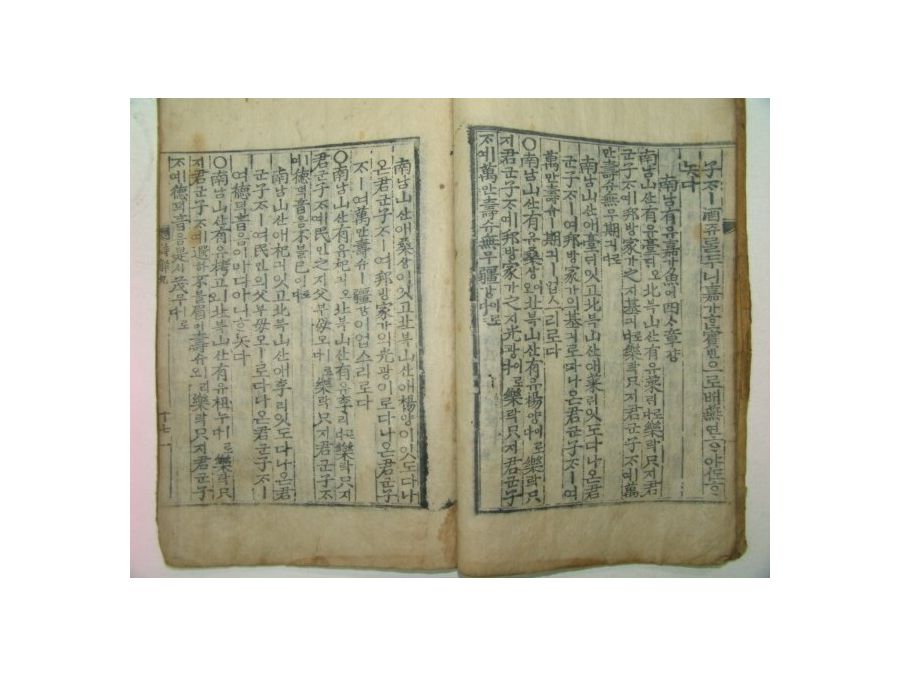 子ᄌᆞㅣ酒쥬를두니嘉가ᄒᆞᆫ賓빈으로ᄡᅥ燕연ᄒᆞ야ᄯᅩᄒᆞ
놋다
南남有유嘉가魚어四ᄉᆞ章쟝
南남山산有유臺ᄃᆡ오北븍山산有유萊ᄅᆡ로다樂락只지君
군子ᄌᆞ여邦방家가之지基긔로다樂락只지君군子ᄌᆞ여萬
만壽슈無무期긔로다
南남山산애臺ᄃᆡ잇고北븍山산애萊ᄅᆡ잇도다나온君
군子ᄌᆞㅣ여邦방家가의基긔로다나온君군子ᄌᆞㅣ여
萬만壽슈ㅣ期긔ㅣ업스리로다
○南남山산有유桑상이오北븍山산有유楊양이로다樂락只
지君군子ᄌᆞ여邦방家가之지光광이로다樂락只지君군子
ᄌᆞ여萬만壽슈無무疆강이로다
南남山산애桑상이잇고北븍山산애楊양이잇도다나
온君군子ᄌᆞㅣ여邦방家가의光광이로다나온君군子
ᄌᆞㅣ여萬만壽슈ㅣ疆강이업스리로다
○南남山산有유杞긔오北븍山산有유李리로다樂락只지
君군子ᄌᆞ여民민之지父부母모ㅣ로다樂락只지君군子ᄌᆞ
여德덕音음不블已이로다
南남山산애杞긔잇고北븍山산애李리잇도다나온君
군子ᄌᆞㅣ여民민의父부母모ㅣ로다나온君군子ᄌᆞㅣ
여德덕音음이마디아니ᄒᆞ놋다
○南남山산有유栲고ㅣ오北븍山산有유杻뉴ㅣ로다樂락只
지君군子ᄌᆞ여遐하不블眉미壽슈ㅣ리오樂락只지君군子
ᄌᆞ여德덕音음是시茂무ㅣ로다
十七